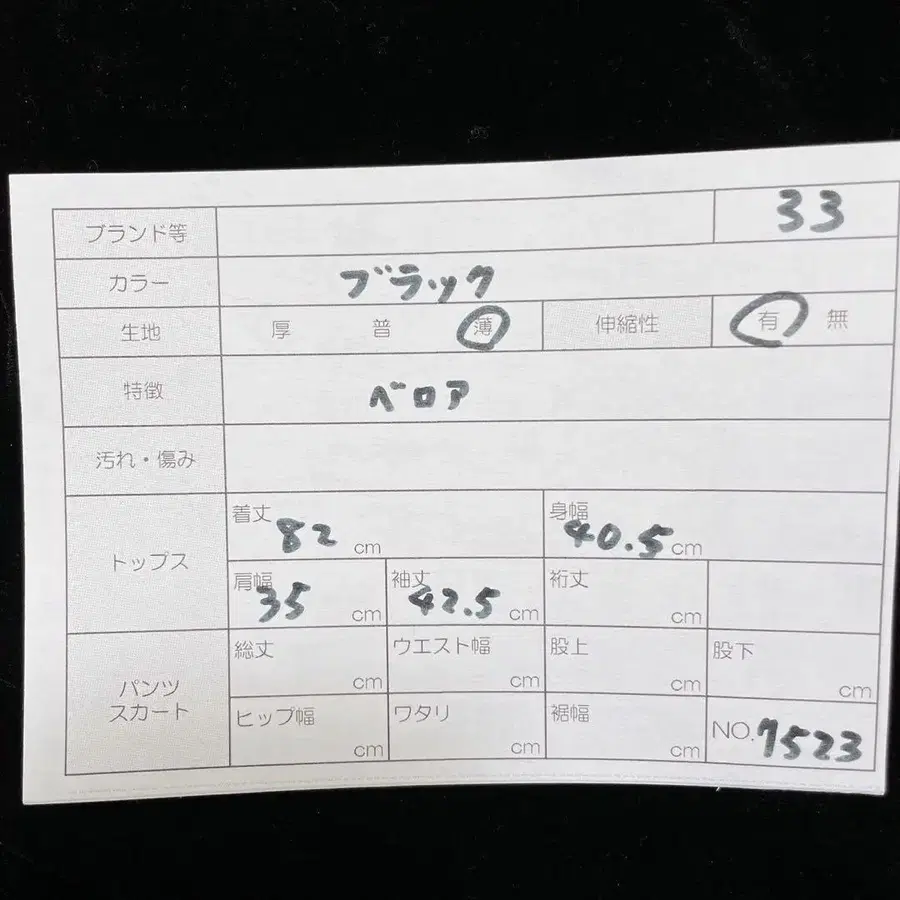 ブランド等 33
カラー ブラック
生地 厚 普 薄 伸縮性 有 無
特徴 ベロア
汚れ・傷み
トップス
着丈 82 cm 身幅 40.5 cm
肩幅 35 cm 袖丈 42.5 cm 裄丈 cm
パンツ
スカート
総丈 cm ウエスト幅 cm 股上 cm 股下 cm
ヒップ幅 cm ワタリ cm 裾幅 cm NO. 7523